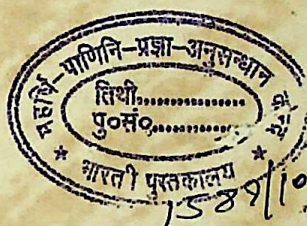 महर्षि-पाणिनि-प्रज्ञा-अनुसन्धान केन्द्र
तिथी..............
पु०सं०..............
* भारती पुस्तकालय *
1589/10